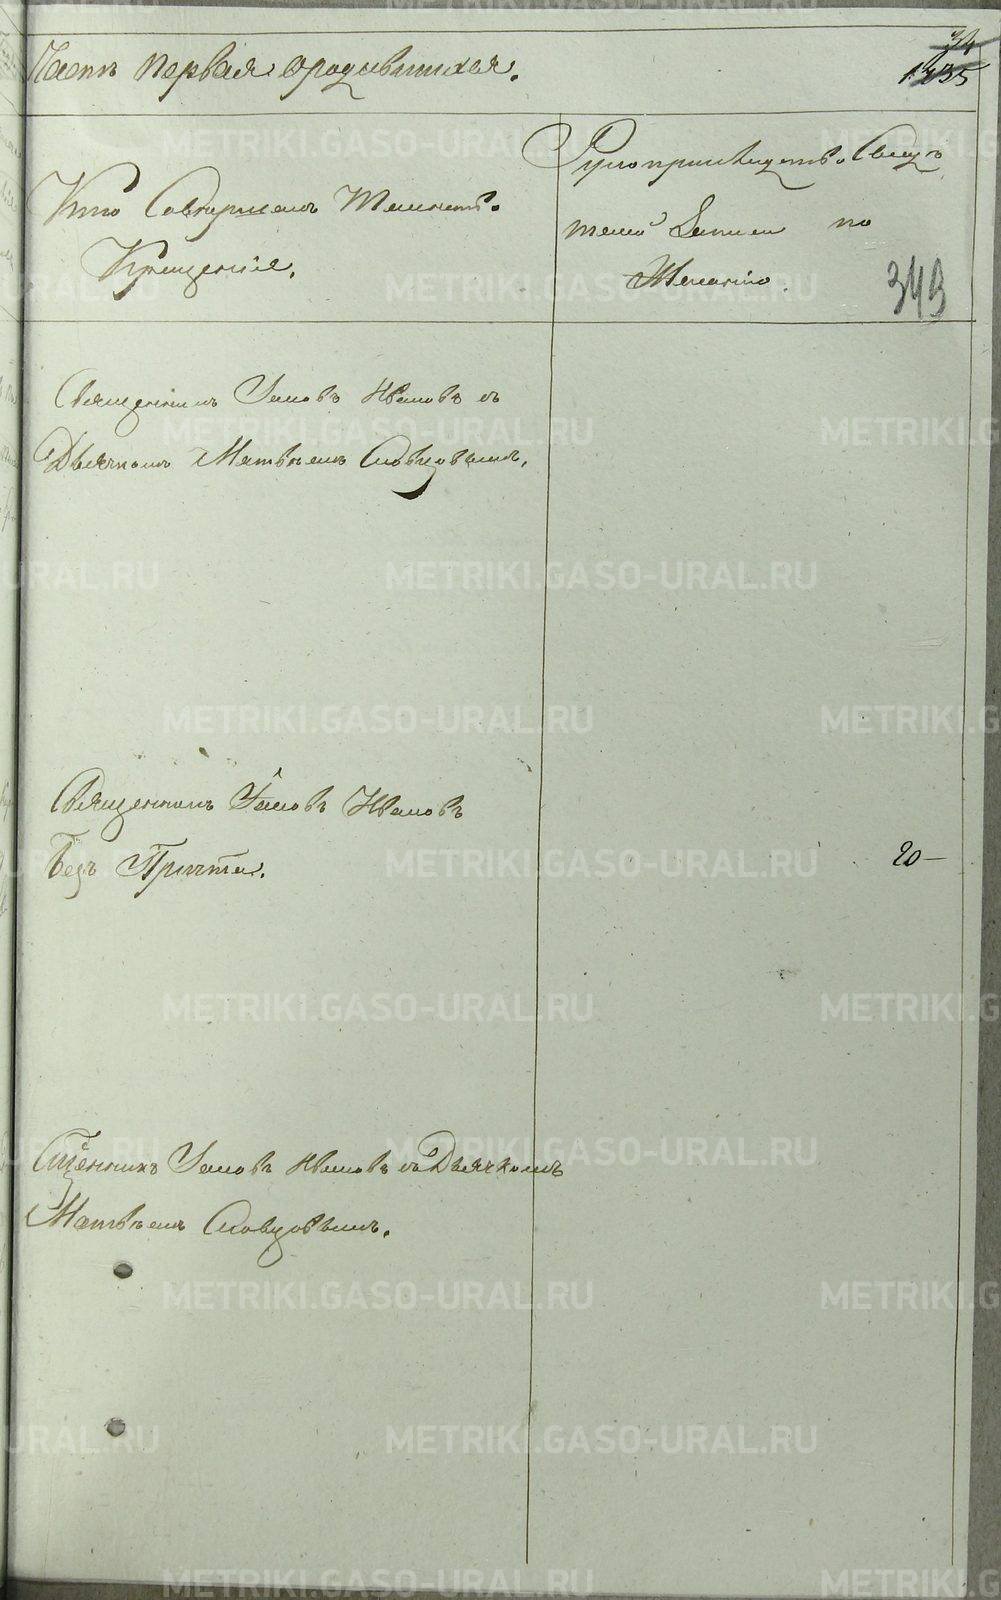 Часть первая ородившихся.
34
1735
Кто Совершалъ Таинство
Крещенія.
Рукоприкладство Свидѣ
телей Записи по
Желанію.
343
Священникъ Іаковъ Ивановъ съ
Дьячкомъ Матвѣемъ Словцовымъ.
Священникъ Іаковъ Ивановъ
безъ Причта.
20—
Сщенникъ Іаковъ Ивановъ съ Дьячкомъ
Матвѣемъ Словцовымъ.
METRIKI.GASO-URAL.RU